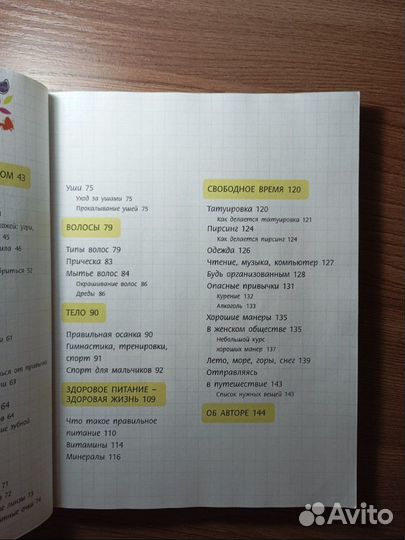 ОМ 43
45
ила 46
бриться 52
61
ли 63
64
ов 64
71
72
ные линзы 73
74
Уши 75
Уход за ушами 75
Прокалывание ушей 75
ВОЛОСЫ 79
Типы волос 79
Прическа 83
Мытье волос 84
Окрашивание волос 86
Дреды 86
ТЕЛО 90
Правильная осанка 90
Гимнастика, тренировки,
спорт 91
Спорт для мальчиков 92
ЗДОРОВОЕ ПИТАНИЕ –
ЗДОРОВАЯ ЖИЗНЬ 109
Что такое правильное
питание 110
Витамины 114
Минералы 116
СВОБОДНОЕ ВРЕМЯ 120
Татуировка 120
Как делается татуировка 121
Пирсинг 124
Как делается пирсинг 124
Одежда 126
Чтение, музыка, компьютер 127
Будь организованным 128
Опасные привычки 131
Курение 132
Алкоголь 133
Хорошие манеры 135
В женском обществе 135
Небольшой курс
хороших манер 137
Лето, море, горы, снег 139
Отправляясь
в путешествие 143
Список нужных вещей 143
ОБ АВТОРЕ 144
Avito